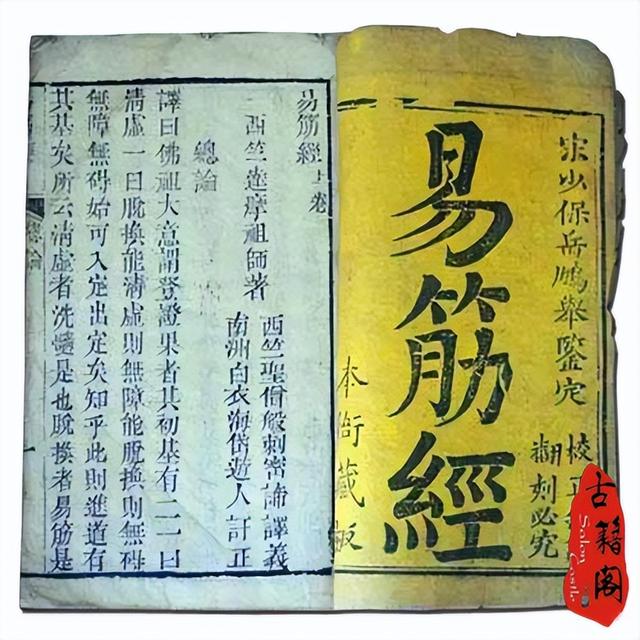 宋少保岳鵬舉鑒定
校正
翻刻必究
易筋經
本衙藏板
易筋經上卷
西竺達摩祖師著
西竺聖僧般刺密諦譯義
南洲白衣海岱遊人訂正
總論
譯曰佛祖大意謂登證果者其初基有二一曰
清虛一曰脫換能清虛則無障能脫換則無碍
無障無碍始可入定出定矣知乎此則進道有
其基矣所云清虛者洗髓是也脫換者易筋是
總論
古籍阁
Salon